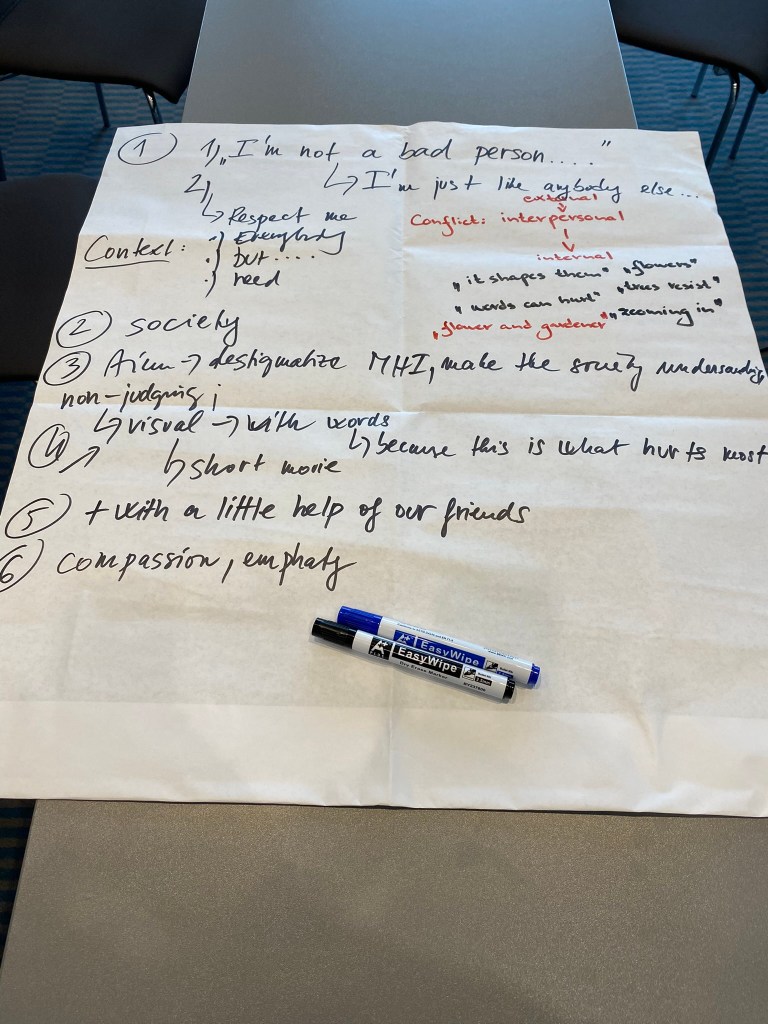 ① 1, „I'm not a bad person...."
2, ↳ I'm just like anybody else...
↳ Respect me
Context: .) Everybody
.) but ....
.) need
external
Conflict: interpersonal
internal
"it shapes them" „flowers"
„trees resist"
"words can hurt"
"zooming in"
„flower and gardener"
② society
③ Aim → destigmatize MHI, make the society understanding,
non-judging;
④ ↳ visual → with words
↳ because this is what hurts most
↳ short movie
⑤ + with a little help of our friends
⑥ compassion, emphaty
EasyWipe
EasyWipe
Dry Erase Marker